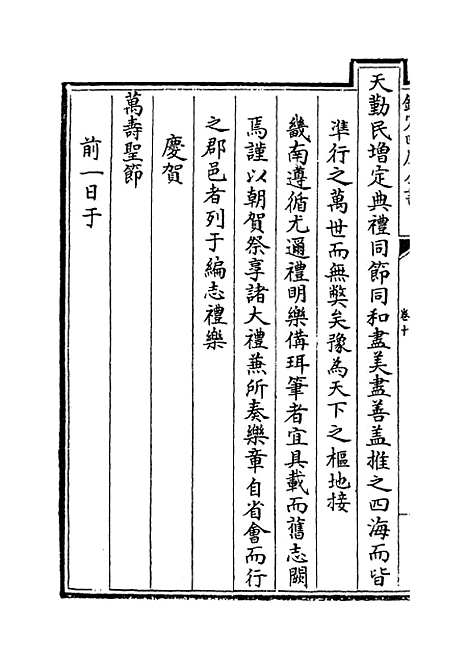 天勤民增定典禮同節同和盡美盡善盖推之四海而皆
準行之萬世而無弊矣豫為天下之樞地接
畿南遵循尤邇禮明樂備珥筆者宜具載而舊志闕
焉謹以朝賀祭享諸大禮兼所奏樂章自省會而行
之郡邑者列于編志禮樂
慶賀
萬壽聖節
前一日于
卷十